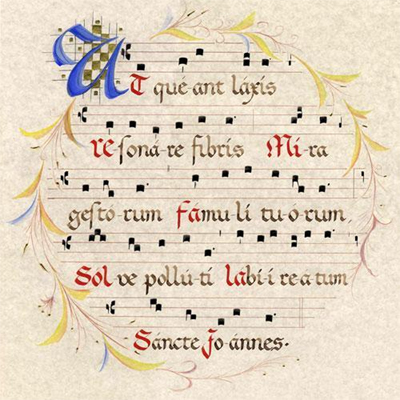 UT qué ant láxis
re soná-re fibris Mi-ra
gestó-rum Fámu-lí tu-ó-rum
Sol-ve pollú-ti lábí-i re-a-tum
Sáncte Jo-ánnes.